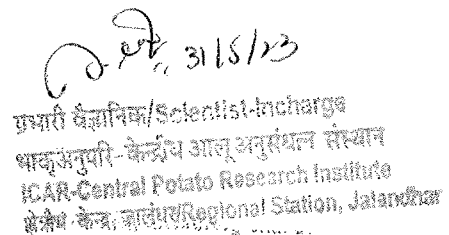 31/5/23
प्रभारी वैज्ञानिक/Scientist-Incharge
भाकृअनुपरि-केन्द्रीय आलू अनुसंधान संस्थान
ICAR-Central Potato Research Institute
क्षेत्रीय केन्द्र, जालंधर/Regional Station, Jalandhar